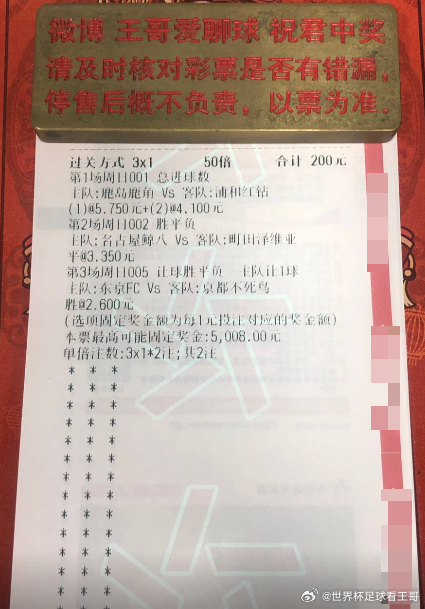 微博 王哥爱聊球 祝君中奖
请及时核对彩票是否有错漏,
停售后概不负责，以票为准.
过关方式 3x1 50倍 合计 200元
第1场周日001 总进球数
主队:鹿岛鹿角 Vs 客队:浦和红钻
(1)@5.750元+(2)@4.100元
第2场周日002 胜平负
主队:名古屋鲸八 Vs 客队:町田泽维亚
平@3.350元
第3场周日005 让球胜平负 主队让1球
主队:东京FC Vs 客队:京都不死鸟
胜@2.600元
(选项固定奖金额为每1元投注对应的奖金额)
本票最高可能固定奖金:5,008.00元
单倍注数:3x1*2注;共2注
* * *
* * *
* * *
* * *
* * *
* * *
* * *
* * *
* * *
* * *
* * *
* * *
* * *
@世界杯足球看王哥